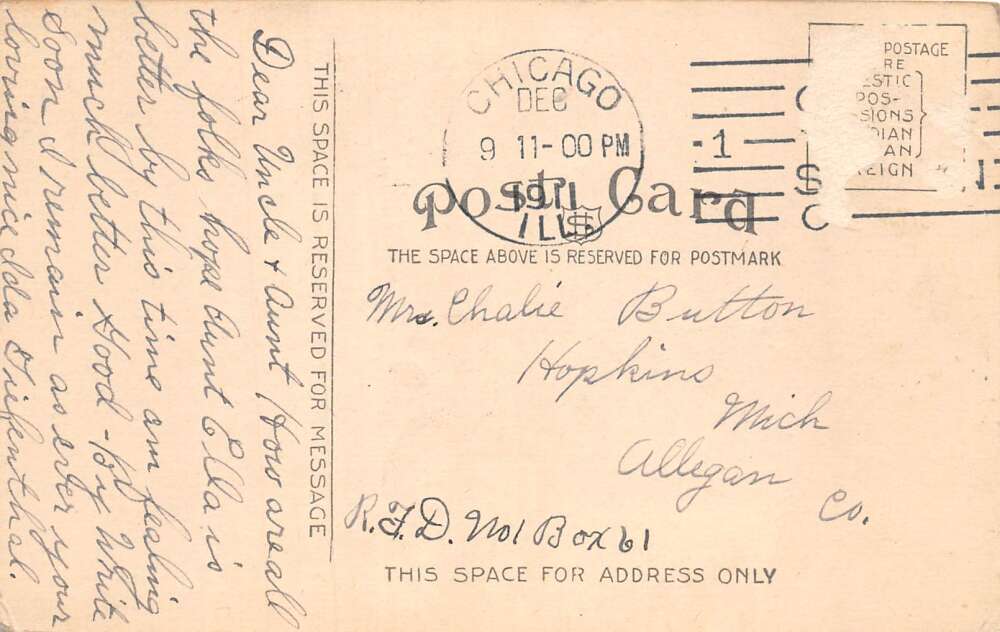 Dear Uncle & Aunt, How are all
the folks hope Aunt Ella is
better by this time am feeling
much better Good-By White
Soon I remain as ever your
loving niece Ida
THIS SPACE IS RESERVED FOR MESSAGE
CHICAGO
DEC
9 11-00 PM
1911
ILL.
1
POSTAGE
RE
ESTIC
POS-
SIONS
DIAN
AN
EIGN
Post Card
THE SPACE ABOVE IS RESERVED FOR POSTMARK
Mrs. Chalie Button
Hopkins
Mich
Allegan
Co.
R.F.D. No 1 Box 61
THIS SPACE FOR ADDRESS ONLY